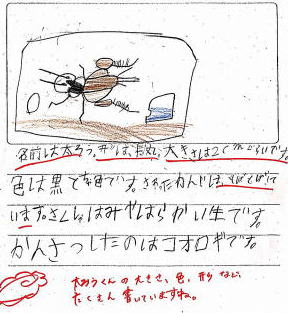 名前は太ろう。形は、長丸。大きさは2cmぐらいです。
色は黒で茶色です。さわったかんじは、すべすべして
います。さんしゅはみやはらかい生です。
かんさつしたのはコオロギです。
太ろうくんの大きさ、色、形など、
たくさん書いていますね。